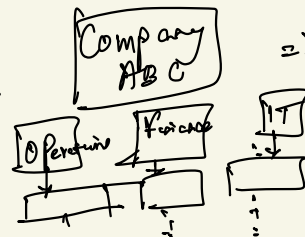 Company
ABC
Operation
Finance
IT